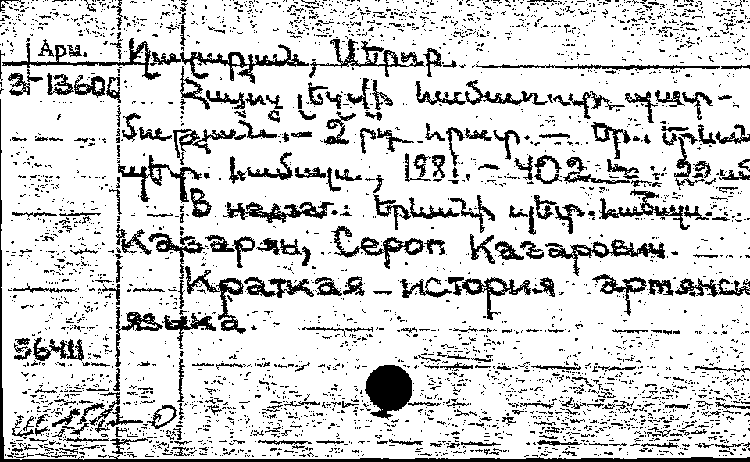 Арм.
Ղազարյան, Սերոբ.
3-13606
Հայոց լեզվի համառոտ պատ-
մություն.- 2 րդ հրատ. — Եր., Երևան
պետ. համալս., 1981. - 402 էջ; 22 սմ
В надзаг.: Երևանի պետ. համալս.
Казарян, Сероп Казарович.
Краткая история армянск
языка.
56411